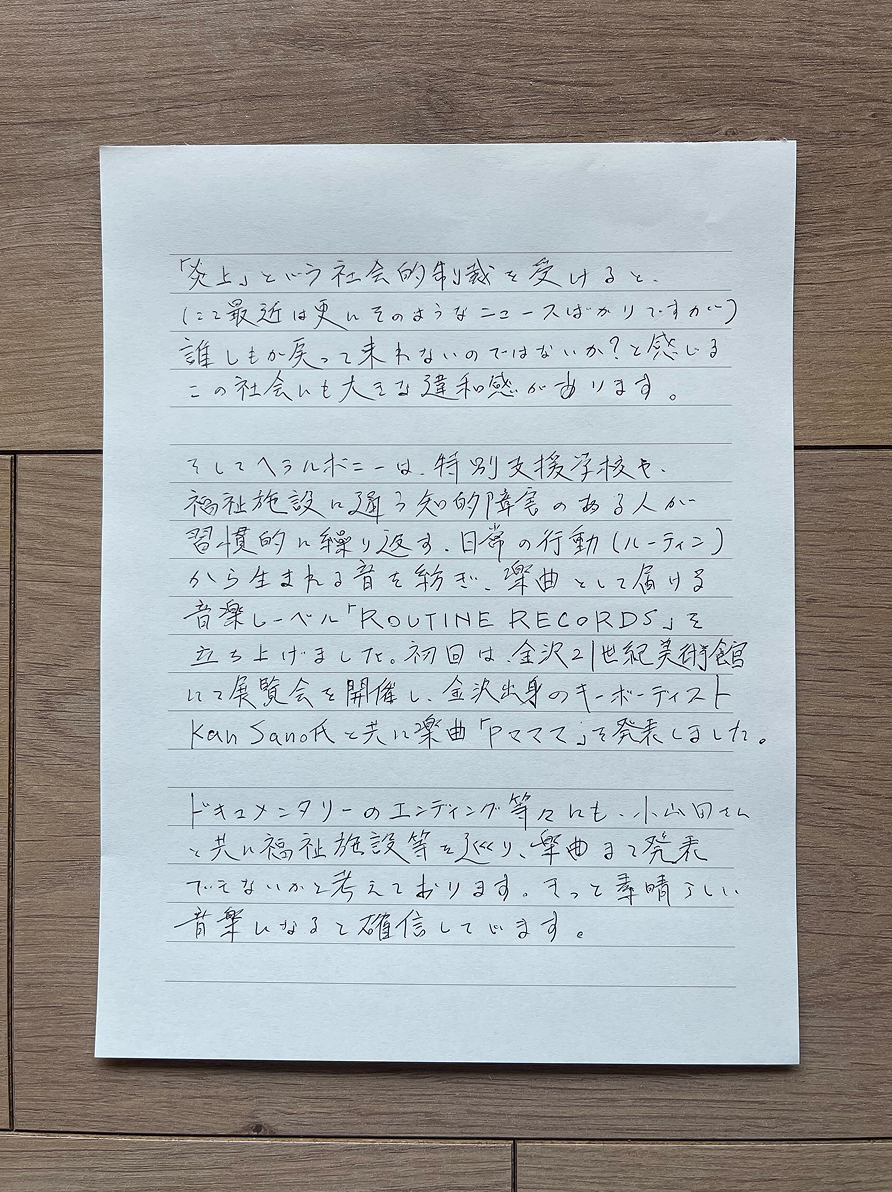 「炎上」という社会的制裁を受けると、
(ここ最近は更にそのようなニュースばかりですが)
誰しもが戻って来れないのではないか?と感じる
この社会にも大きな違和感があります。
そしてヘラルボニーは、特別支援学校や、
福祉施設に通う知的障害のある人が
習慣的に繰り返す、日常の行動(ルーティン)
から生まれる音を紡ぎ、楽曲として届ける
音楽レーベル「ROUTINE RECORDS」を
立ち上げました。初回は、金沢21世紀美術館
にて展覧会を開催し、金沢出身のキーボーディスト
Kan Sano氏と共に楽曲「Pママママ」を発表しました。
ドキュメンタリーのエンディング等々にも、小山田さん
と共に福祉施設等を巡り、楽曲まで発表
できないかと考えております。きっと素晴らしい
音楽になると確信しています。